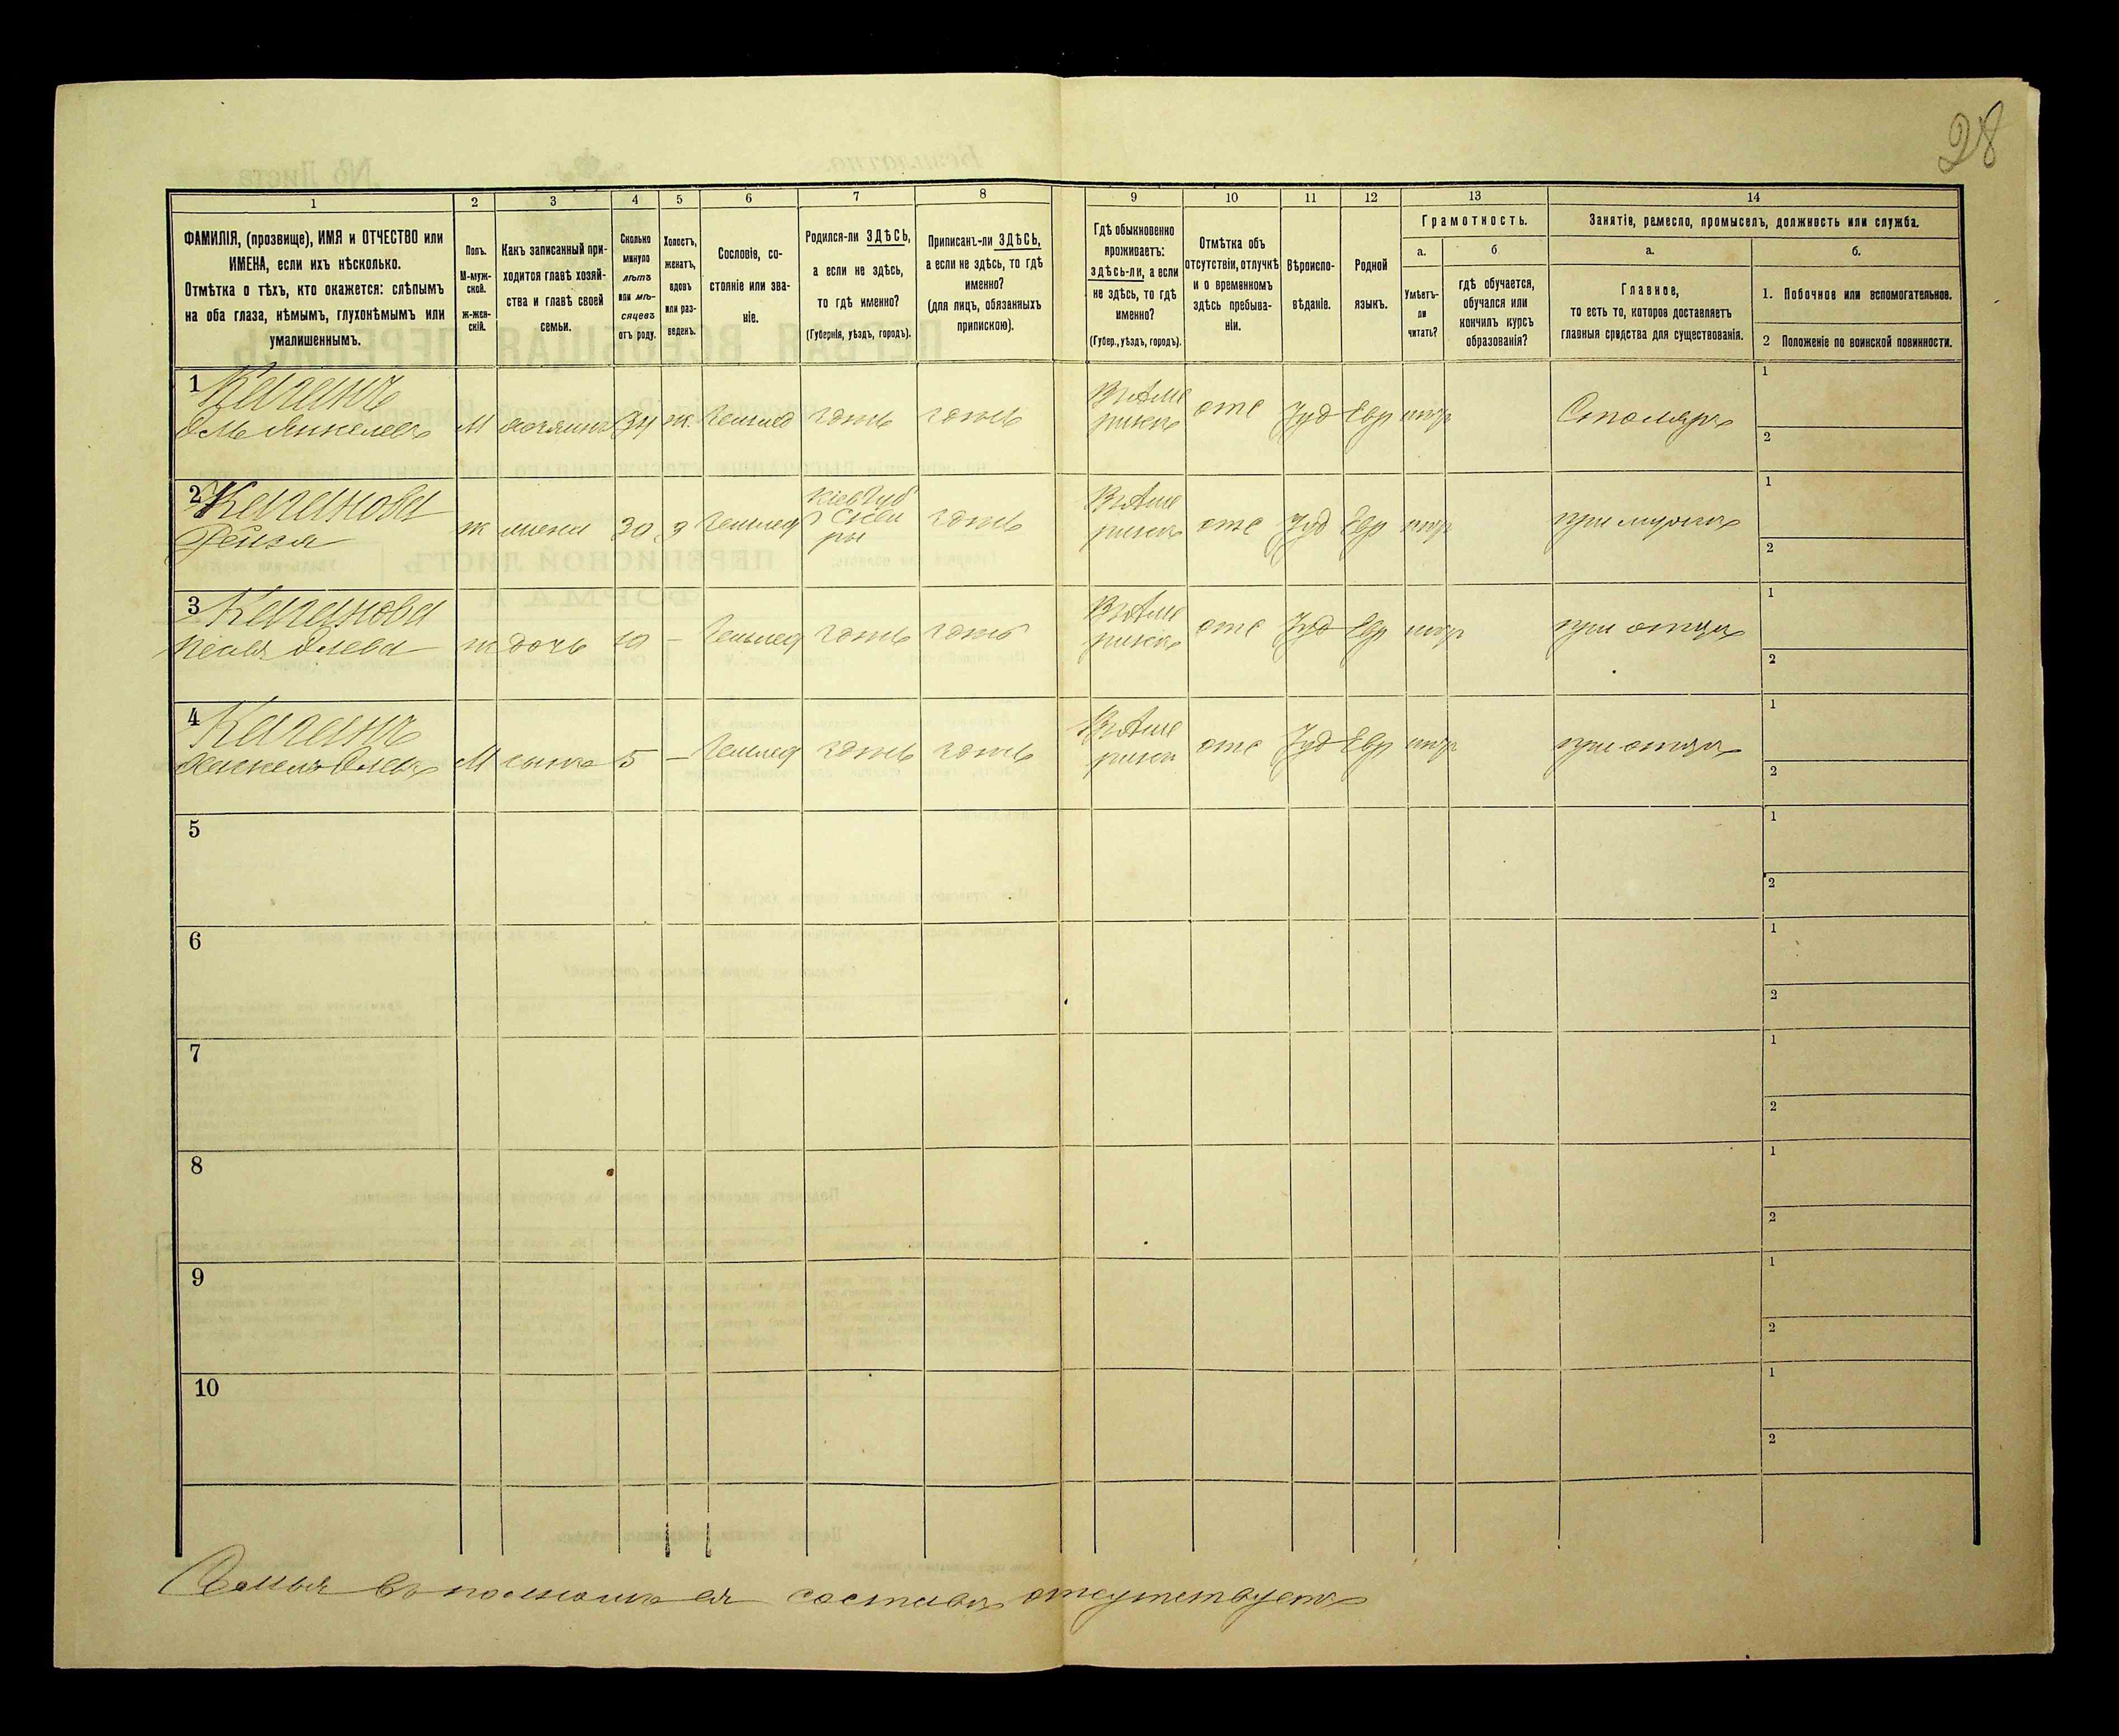 28
1
2
3
4
5
6
7
8
9
10
11
12
13
14
ФАМИЛІЯ, (прозвище), ИМЯ и ОТЧЕСТВО или
ИМЕНА, если ихъ нѣсколько.
Отмѣтка о тѣхъ, кто окажется: слѣпымъ
на оба глаза, нѣмымъ, глухонѣмымъ или
умалишеннымъ.
Полъ.
М-муж-
ской.
ж-жен-
скій.
Какъ записанный при-
ходится главѣ хозяй-
ства и главѣ своей
семьи.
Сколько
минуло
лѣтъ
или мѣ-
сяцевъ
отъ роду.
Холостъ,
женатъ,
вдовъ
или раз-
веденъ.
Сословіе, со-
стояніе или зва-
ніе.
Родился-ли ЗДѢСЬ,
а если не здѣсь,
то гдѣ именно?
(Губернія, уѣздъ, городъ).
Приписанъ-ли ЗДѢСЬ,
а если не здѣсь, то гдѣ
именно?
(для лицъ, обязанныхъ
припискою).
Гдѣ обыкновенно
проживаетъ:
здѣсь-ли, а если
не здѣсь, то гдѣ
именно?
(Губер., уѣздъ, городъ).
Отмѣтка объ
отсутствіи, отлучкѣ
и о временномъ
здѣсь пребыва-
ніи.
Вѣроиспо-
вѣданіе.
Родной
языкъ.
Грамотность.
а.
б.
Умѣетъ-
ли
читать?
гдѣ обучается,
обучался или
кончилъ курсъ
образованія?
Занятіе, ремесло, промыселъ, должность или служба.
а.
б.
Главное,
то есть то, которое доставляетъ
главныя средства для существованія.
1. Побочное или вспомогательное.
2 Положеніе по воинской повинности.
1 Каганъ
М хозяинъ 34 ж. тожъ тожъ
В Аме
рикѣ
отс Іуд Евр негр Столяръ
1
2
2 Каганова
Рейзя
ж жена 30 з
Кіев Губ
Скви
ры
тожъ
В Аме
рикѣ
отс Іуд Евр негр при мужѣ
1
2
3 Каганова
ж дочь 10 - тожъ тожъ
В Аме
рикѣ
отс Іуд Евр негр при отцѣ
1
2
4 Каганъ
М сынъ 5 - тожъ тожъ
В Аме
рики
отс Іуд Евр негр при отцѣ
1
2
5
1
2
6
1
2
7
1
2
8
1
2
9
1
2
10
1
2
Семья въ полномъ ея составѣ отсутствуетъ